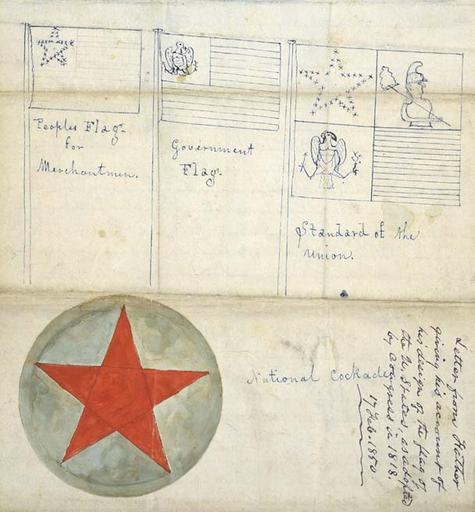 Peoples Flag
for
Merchantmen.
Government
Flag.
Standard of the
Union.
National Cockade
Letter from Father
giving his account of
his design of the flag of
the U. States, as adopted
by Congress in 1818.
17 Feb. 1850